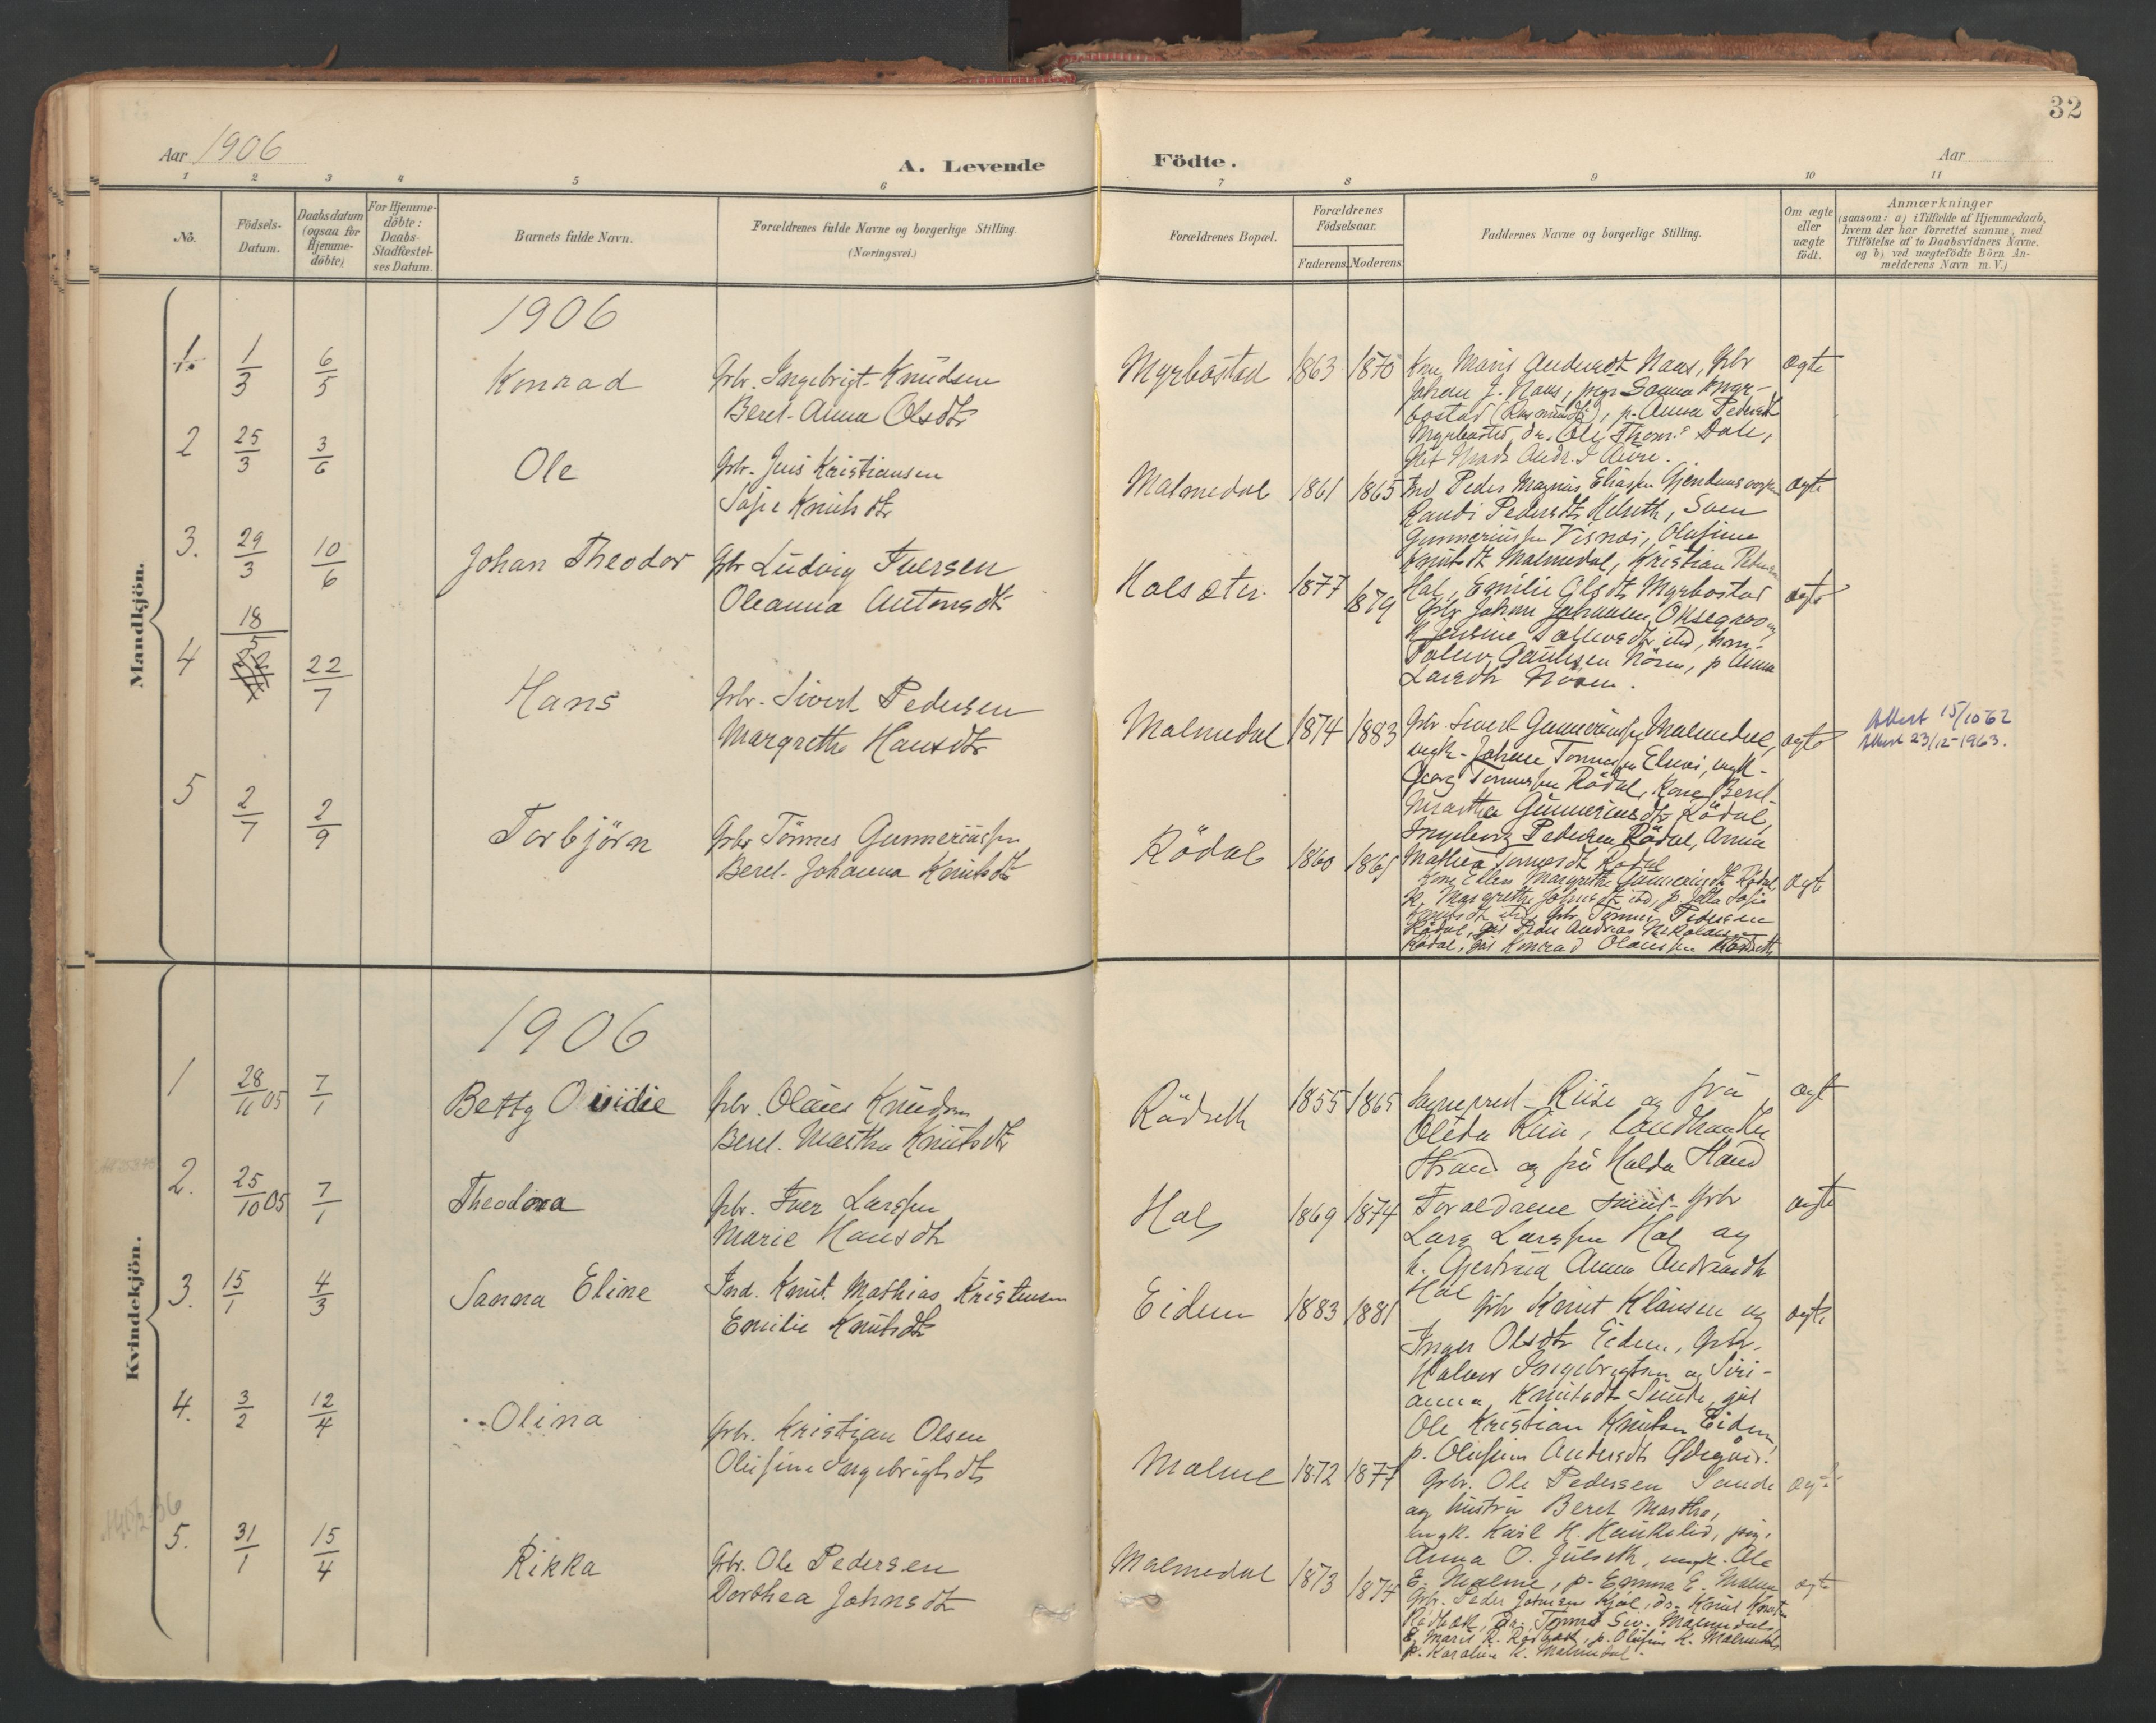 32
Aar 1906
A. Levende Födte.
Aar
1 2 3 4 5 6 7 8 9 10 11
No.
Födsels-Datum.
Daabsdatum (ogsaa for Hjemme-döbte)
For Hjemme-döbte: Daabs-Stadfæstel-ses Datum.
Barnets fulde Navn.
Forældrenes fulde Navne og borgerlige Stilling.
(Næringsvei.)
Forældrenes Bopæl.
Forældrenes Födselsaar.
Faderens. Moderens.
Faddernes Navne og borgerlige Stilling.
Om ægte eller uægte födt.
Anmærkninger
(saasom: a) i Tilfælde af Hjemmedaab,
hvem der har forrettet samme, med
Tilföielse af to Daabsvidners Navne,
og b) ved uægtefödte Börn An-
melderens Navn m.V.)
Mandkjön.
1906
1. 1/3 6/5 Konrad Gbr. Ingebrigt Knudsen
Beret-Anna Olsdtr
Myrbostad 1863 1870 Kone Marit Andersdt Naas, Gbr
Johan J. Naas,
bostad (Rasmusdt), p. Anna Pedersdt
Myrbostad, dr. Ole Thom. Dale,
ægte
2 25/3 3/6 Ole Gbr. Jens Kristiansen
Sofie Knutsdtr
Malmedal 1861 1865 Ind Peder Magnus Eliassen
Randi Pedersdtr Helseth, Sven
Gunneriussen Visnæs, Olufine
Knutsdt Malmedal, Kristian Pedersen
Hal, Emilie Olsdt Myrbostad
ægte
3. 29/3 10/6 Johan Theodor Gbr Ludvig Iversen
Oleanna Antonsdtr
Halsæter 1877 1879
Larsdtr
ægte
4 18/5 22/7 Hans Gbr. Sivert Pedersen
Margrethe Hansdtr
Malmedal 1874 1883 Gbr. Sivert Gunneriussen Malmedal,
ungk. Johan Tormessen Elnæs, ungk.
Georg Tormessen Rödal, Kone Beret-
Martha Gunneriusdtr Rödal,
Ingeborg Pedersen Rödal, Anna
Mathea Tormesdt Rödal
ægte
Attest 15/10 62
Attest 23/12-1963.
5 2/7 2/9 Torbjörn Gbr Törmes Gunneriussen
Beret-Johanna Knutsdtr
Rödal 1860 1865 Kone Ellen Margrethe Gunneriusdt Rödal,
K. Margrethe Johnsdt ibd, p. Jetta Sofie
Knutsdt ibd, Gbr. Tormes Pedersen
Rödal, gut Peder Andreas Nikolaisen
Rödal, gut Konrad Olaussen Rödseth
ægte
Kvindekjön.
1906
1 28/11 05 7/1 Betty Ovidie Gbr. Olaus Knudsen
Beret-Martha Knutsdtr
Rödseth 1855 1865 Sognepræst Riise og fru
Oleda Riise, Landhandler
Strand og fru Halda Strand
ægte
2. 25/10 05 7/1 Theodora Gbr. Iver Larssen
Marie Hansdtr
Hals 1869 1874 Foraldrene samt Gbr
Lars Larssen Hal og
h. Gjertrud Anna Andreasdtr
Hal
ægte
3. 15/1 4/3 Sanna Eline Ind. Knut Mathias Kristensen
Emilie Knutsdtr
Eidem 1883 1881 Gbr Knut Klausen og
Inger Olsdtr Eidem, Gbr.
Halvor Ingebrigtsen og Siri-
anna Knutsdtr Sunde, gut
Ole Kristian Knutsen Eidem,
p. Olufine Andersdtr
ægte
4. 3/2 12/4 Olina Gbr. Kristian Olsen
Olufine Ingebrigtsdtr
Malme 1872 1877 Gbr. Ole Pedersen Sande
og hustru Beret Martha,
ungk. Karl H. Haukalid, pig.
Anna O. Julseth, ungk. Ole
E. Malme, p. Emma E. Malme
ægte
5. 31/1 15/4 Rikka Gbr. Ole Pedersen
Dorthea Johnsdtr
Malmedal 1873 1874 Gbr. Peder Johnsen Kjöl, dr. Knut Knutsen
Rödseth, dr. Tormod Siv. Malmedal,
p. Olufine K. Malmedal
p. Karoline K. Malmedal.
ægte